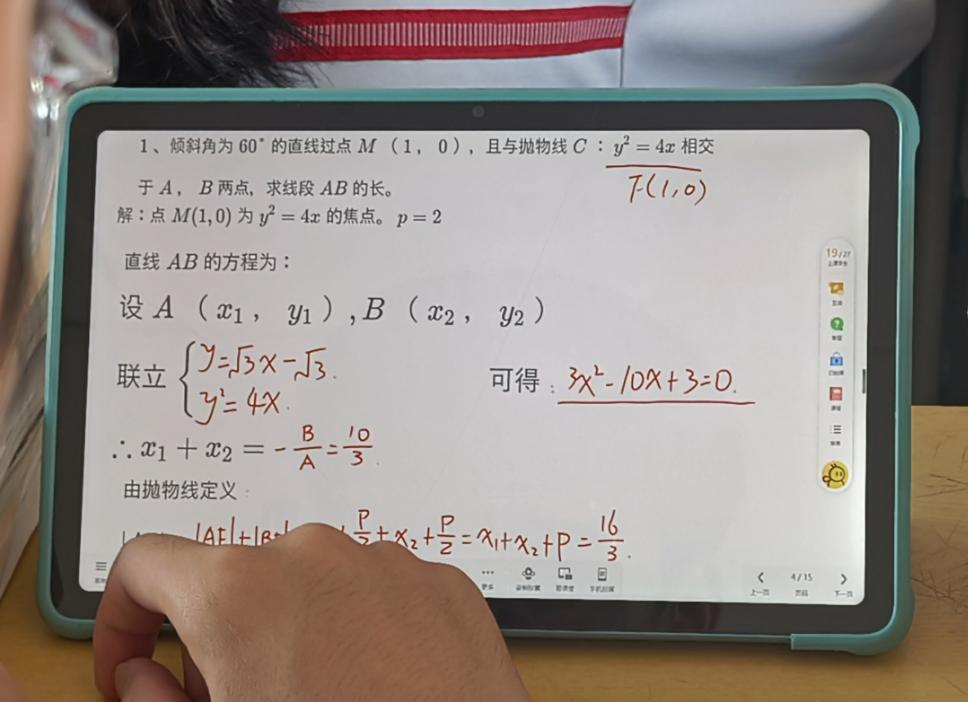 1、倾斜角为 60° 的直线过点 M （1， 0），且与抛物线 C：y² = 4x 相交
F(1,0)
于 A， B 两点，求线段 AB 的长。
解：点 M(1,0) 为 y² = 4x 的焦点。p = 2
直线 AB 的方程为：
设 A （x₁， y₁）, B （x₂， y₂）
联立 { y=√3x-√3.
y²=4x.
可得：3x²-10x+3=0.
∴ x₁ + x₂ = -B/A = 10/3
由抛物线定义：
|AF|+|B + P/2 + x₂ + P/2 = x₁+x₂+P = 16/3.
19/27
更多
4/15
上一页
页码
下一页